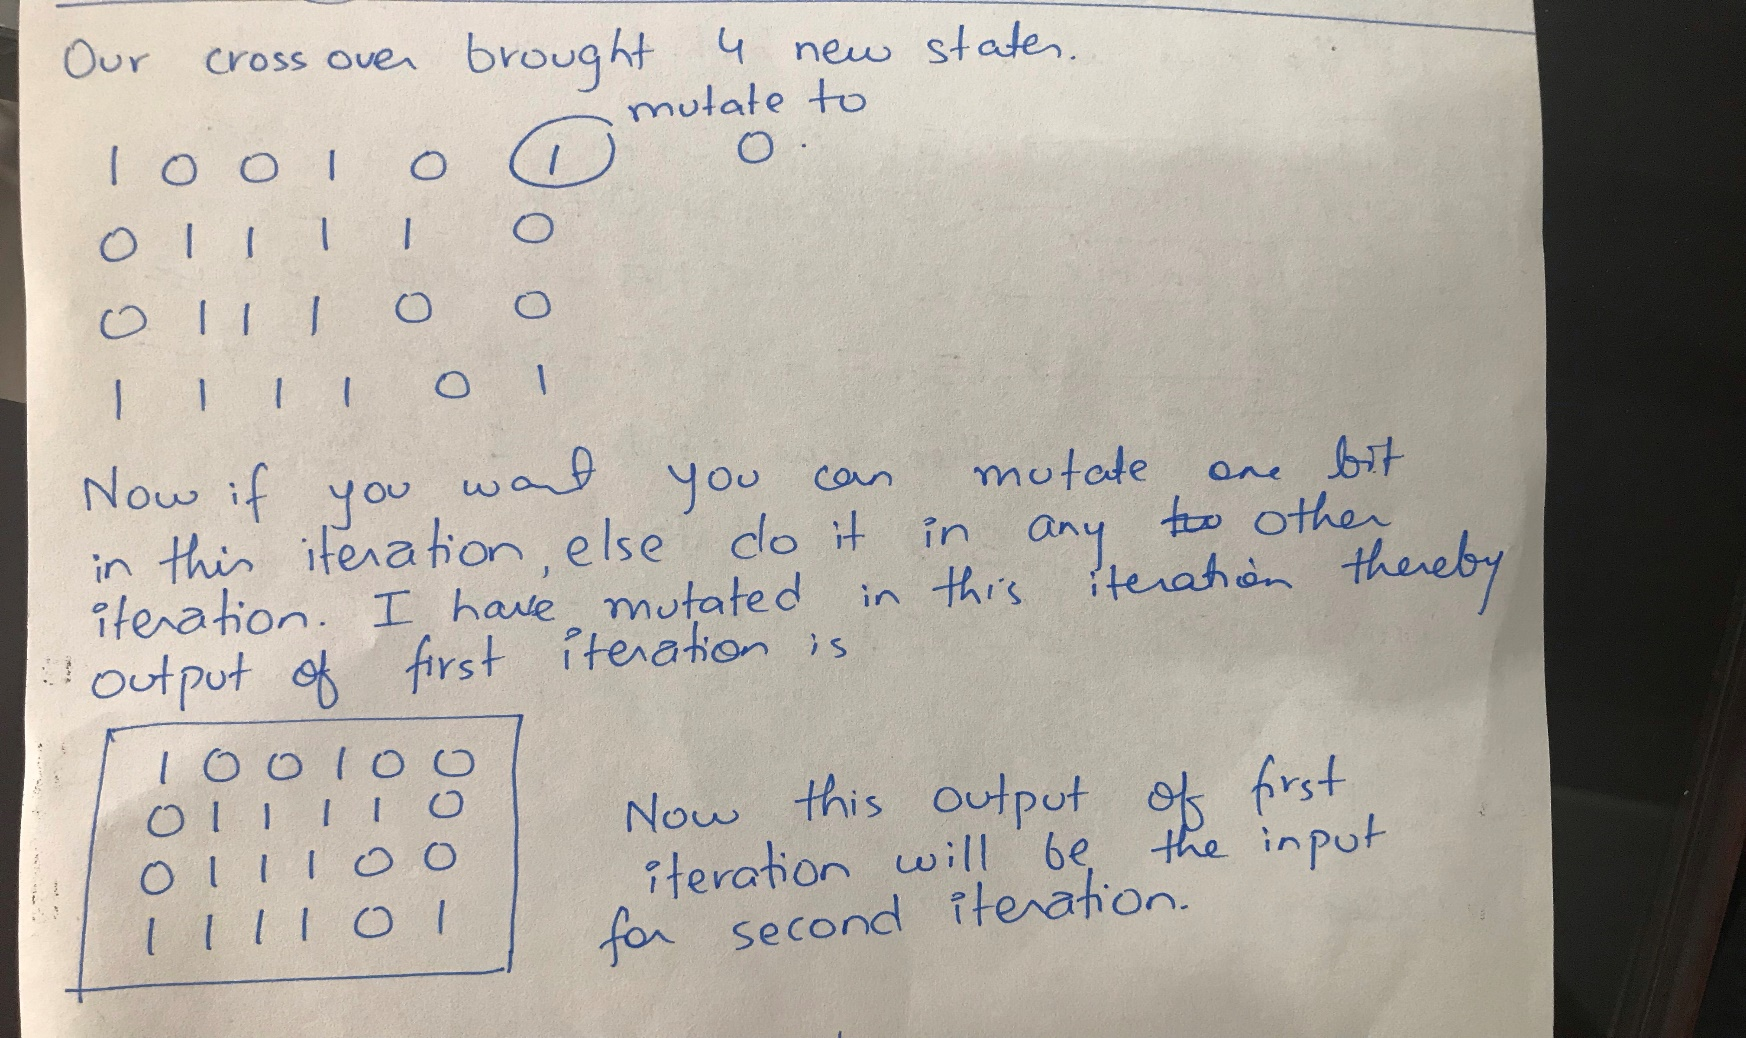 Our cross over brought 4 new states.
mutate to
1 0 0 1 0 1 0.
0 1 1 1 1 0
0 1 1 1 0 0
1 1 1 1 0 1
Now if you want you can mutate one bit
in this iteration, else do it in any other
iteration. I have mutated in this iteration thereby
output of first iteration is
1 0 0 1 0 0
0 1 1 1 1 0
0 1 1 1 0 0
1 1 1 1 0 1
Now this output of first
iteration will be the input
for second iteration.